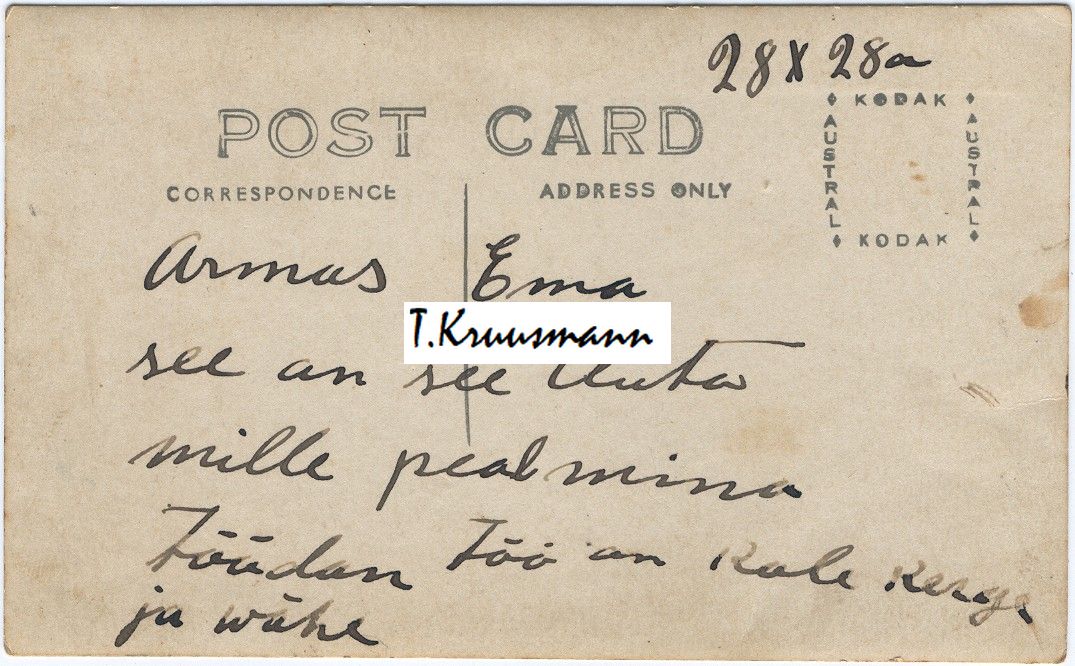 28 X 28a
POST CARD
CORRESPONDENCE ADDRESS ONLY
KODAK
AUSTRAL AUSTRAL
KODAK
Armas Ema
T.Kruusmann
see on see Auto
mille peal mina
Töödan Töö on Kole Kerge
ja wähe